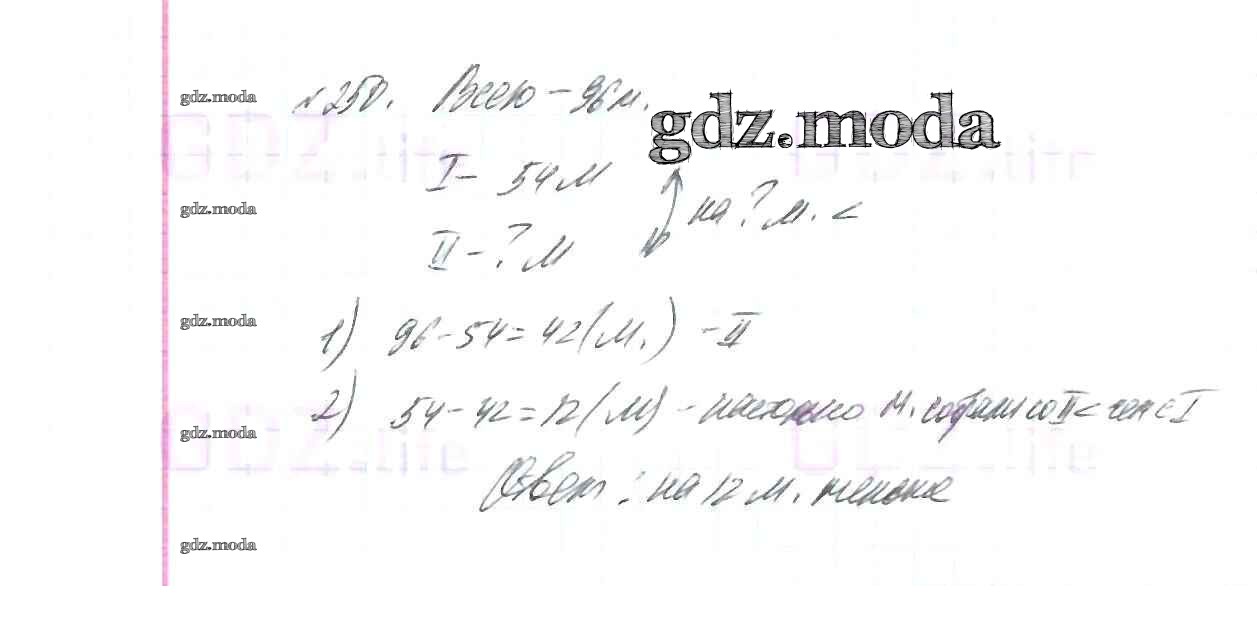 gdz.moda
№250. Всего - 96 м.
gdz.moda
GDZ.life
GDZ.life
I - 54 м
на ? м. <
gdz.moda
II - ? м
gdz.moda
1) 96-54=42(м.) - II
2) 54-42=12(м) - настолько м. собрали со II < чем с I
gdz.moda
GDZ.life
GDZ.life
Ответ: на 12 м. меньше
gdz.moda